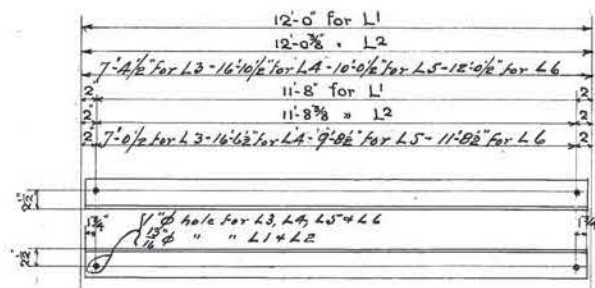 12'-0" for L1
12'-0⅜" " L2
7'-4½" for L3-16'-10½" for L4-10'-0½" for L5-12'-0½" for L6
2" 11'-8" for L1 2"
2" 11'-8⅜" " L2 2"
2" 7'-0½" for L3-16'-6½" for L4-9'-8½" for L5-11'-8½" for L6 2"
2½"
1¾" 1"φ hole for L3, L4, L5 & L6 1¾"
13/16"φ " " L1 & L2
2½"